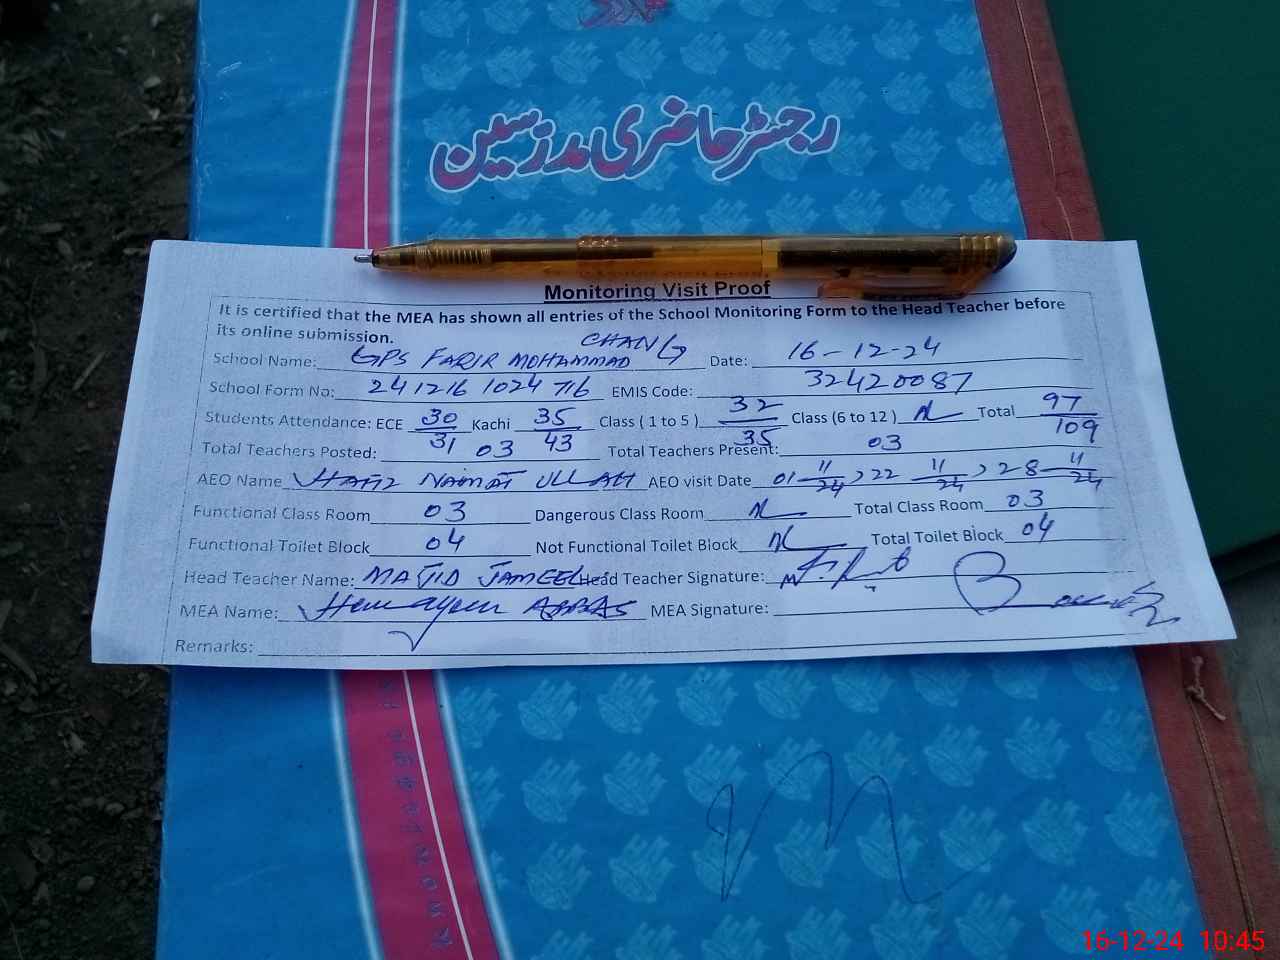 رجسٹر حاضری مدرسین
Monitoring Visit Proof
It is certified that the MEA has shown all entries of the School Monitoring Form to the Head Teacher before
its online submission.
CHANG
School Name: GPS FAQIR MOHAMMAD Date: 16-12-24
School Form No: 241216 1024 716 EMIS Code: 32420087
Students Attendance: ECE 30/31 Kachi 35/43 Class ( 1 to 5 ) 32/35 Class (6 to 12 ) Total 97/109
Total Teachers Posted: 03 Total Teachers Present: 03
AEO Name HAFIZ NAIMAT ULLAH AEO visit Date 01-11/24, 22 11/24, 28-11/24
Functional Class Room 03 Dangerous Class Room Total Class Room 03
Functional Toilet Block 04 Not Functional Toilet Block Total Toilet Block 04
Head Teacher Name: MAJID JAMEEL Head Teacher Signature:
MEA Name: Humayoun ABBAS MEA Signature:
Remarks:
16-12-24 10:45